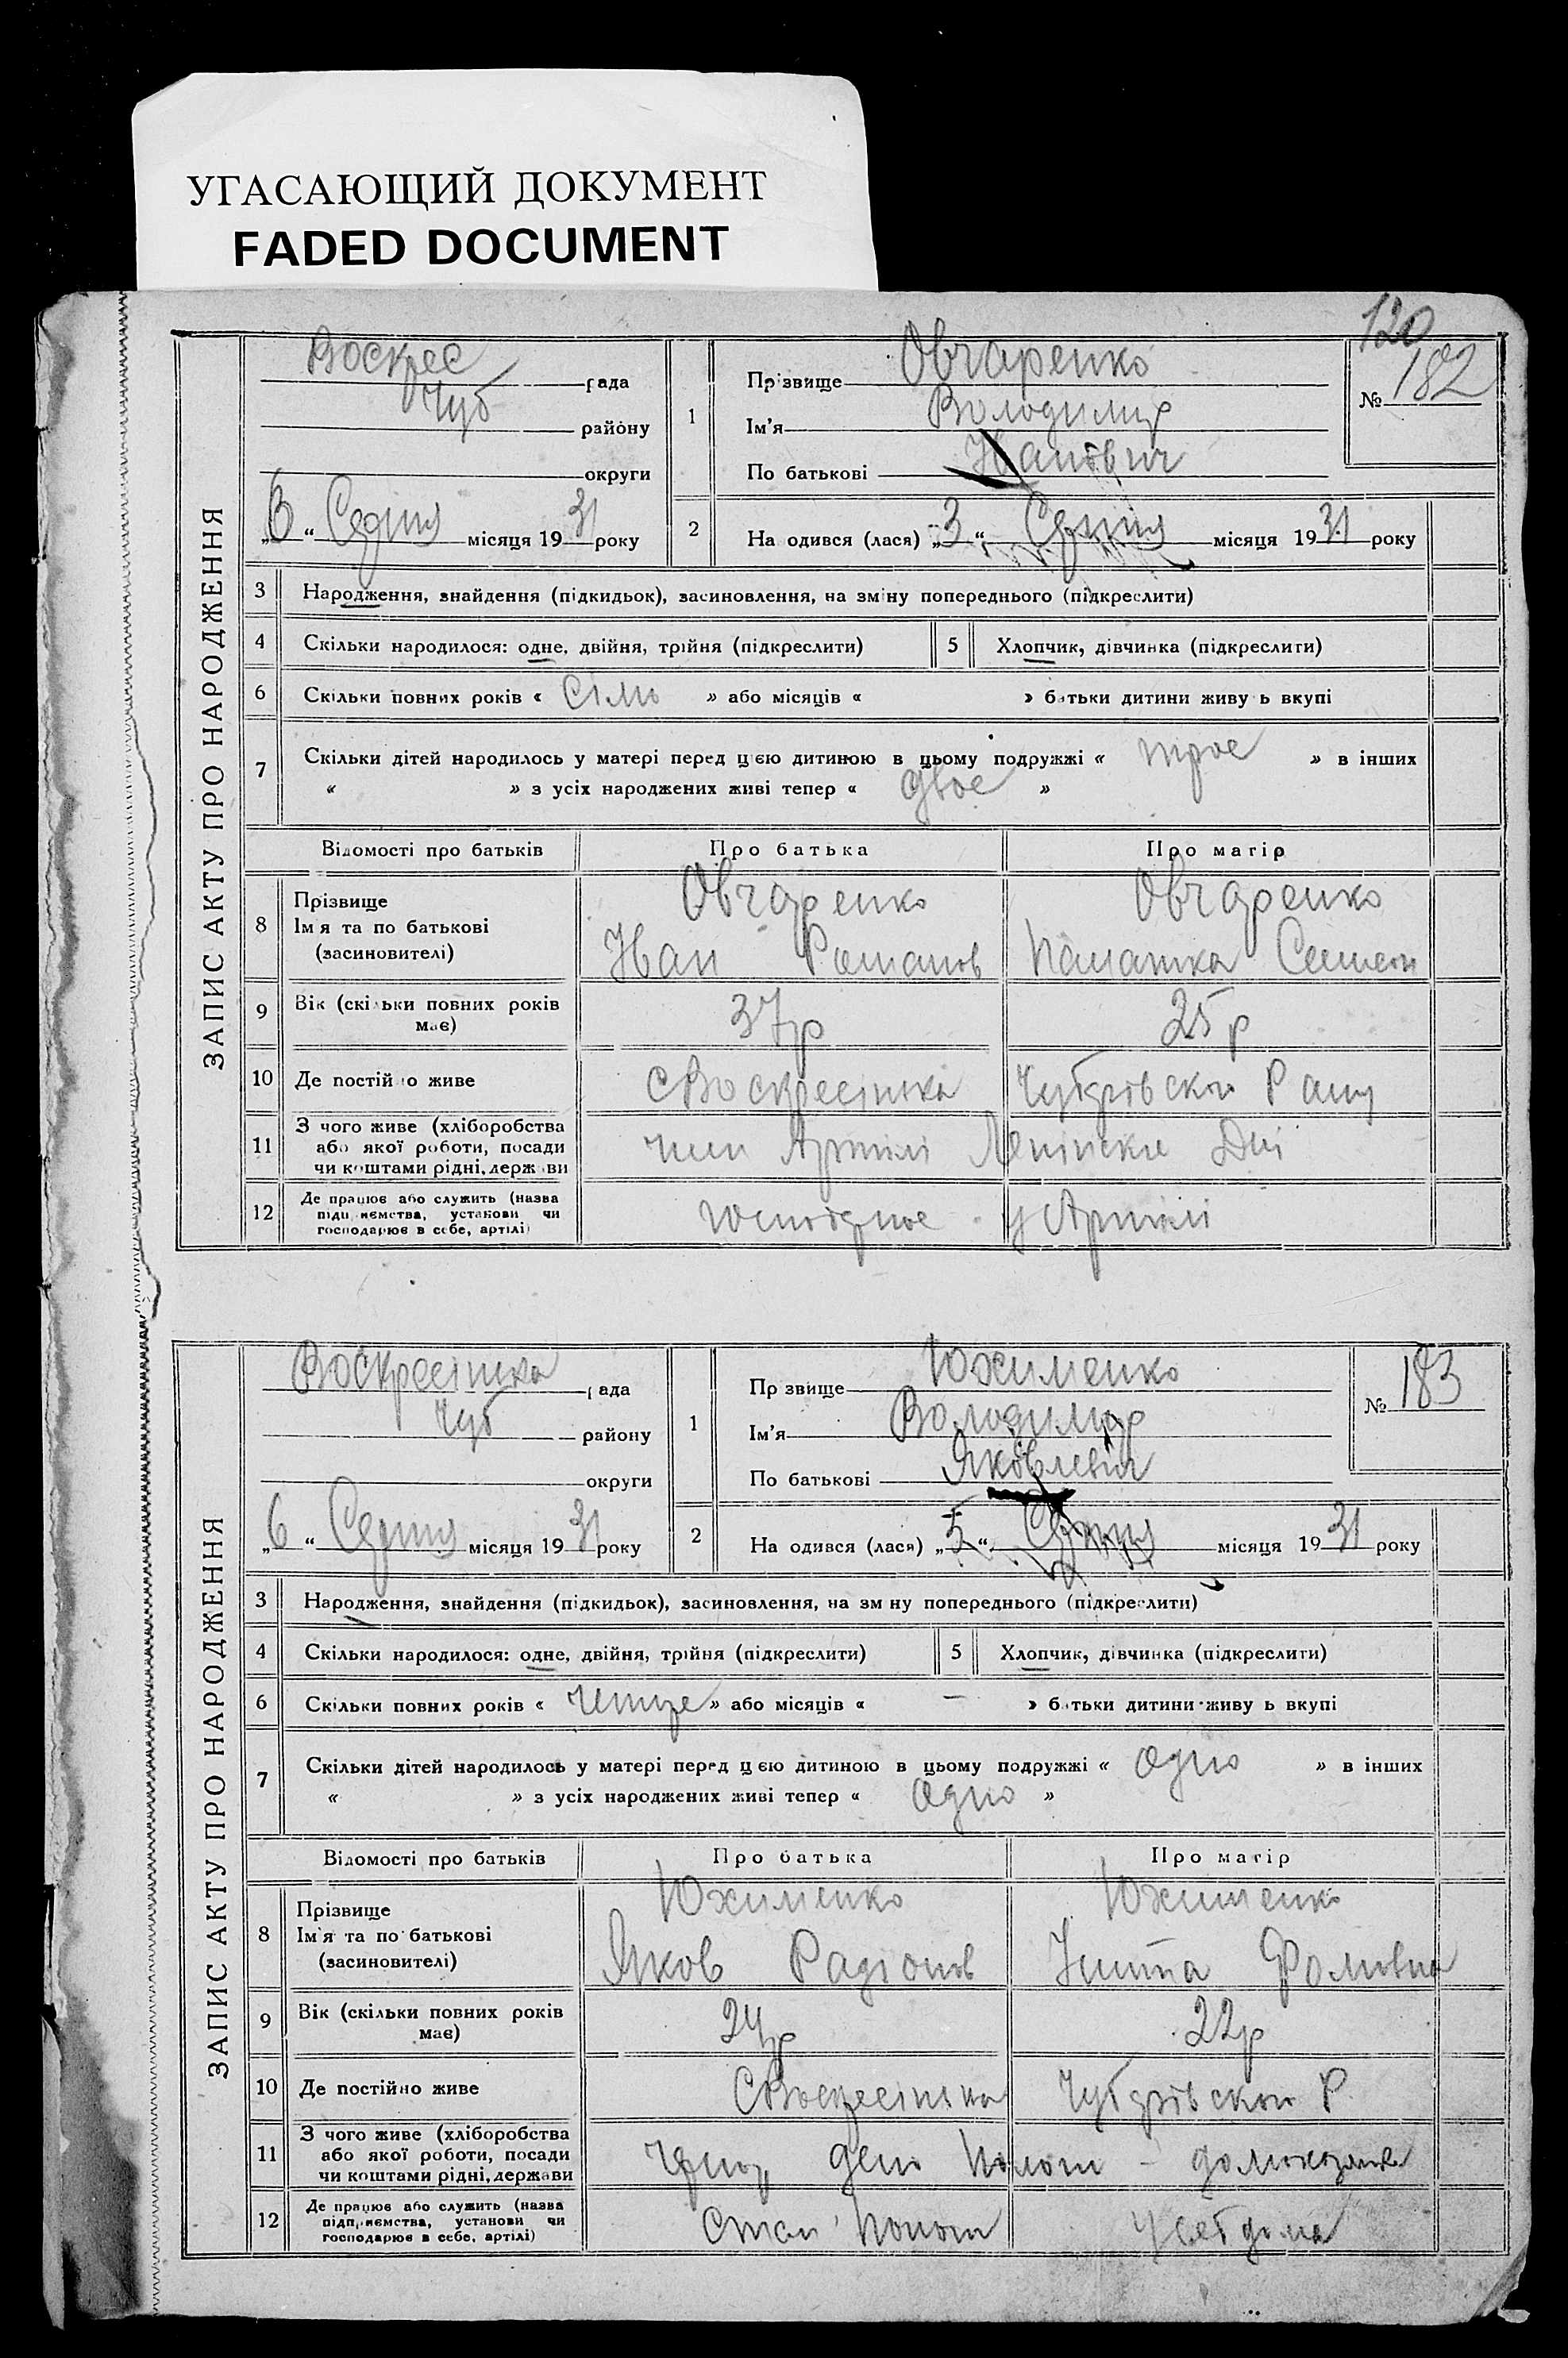 УГАСАЮЩИЙ ДОКУМЕНТ
FADED DOCUMENT
120
ЗАПИС АКТУ ПРО НАРОДЖЕННЯ
Воскрес рада
Чуб району
округи
„6“ Серпня місяця 1931 року
1
Прізвище Овчаренко
Ім'я Володимир
По батькові Иванович
№ 182
2 На одився (лася) „3“ Серпня місяця 1931 року
3 Народження, знайдення (підкидьок), засиновлення, на зміну попереднього (підкреслити)
4 Скільки народилося: одне, двійня, трійня (підкреслити) 5 Хлопчик, дівчинка (підкреслити)
6 Скільки повних років « сім » або місяців « » батьки дитини живу ь вкупі
7 Скільки дітей народилось у матері перед цією дитиною в цьому подружжі « троє » в інших
« » з усіх народжених живі тепер « двоє »
Відомості про батьків Про батька Про матір
8 Прізвище Овчаренко Овчаренко
Ім я та по батькові Иван Романов
(засиновителі)
9 Вік (скільки повних років 37р 25р
має)
10 Де постійно живе с Воскресінка Чубарівског Рану
11 З чого живе (хліборобства
або якої роботи, посади член Артілі Ленінскі Дні
чи коштами рідні, держави
12 Де працює або служить (назва
підприємства, установи чи у Артілі
господарює в себе, артілі)
ЗАПИС АКТУ ПРО НАРОДЖЕННЯ
Воскресінка рада
Чуб району
округи
„6“ Серпня місяця 1931 року
1
Пр звище Юхименко
Ім'я Володимир
По батькові Яковлевич
№ 183
2 На одився (лася) „5“ Серпня місяця 1931 року
3 Народження, знайдення (підкидьок), засиновлення, на зм ну попереднього (підкреслити)
4 Скільки народилося: одне, двійня, трійня (підкреслити) 5 Хлопчик, дівчинка (підкреслити)
6 Скільки повних років « » або місяців « — » батьки дитини живу ь вкупі
7 Скільки дітей народилось у матері перед цією дитиною в цьому подружжі « одно » в інших
« » з усіх народжених живі тепер « одно »
Відомості про батьків Про батька Про матір
8 Прізвище Юхименко Юхименко
Ім я та по батькові Яков Радіонов Фомовна
(засиновителі)
9 Вік (скільки повних років 24р 22р
має)
10 Де постійно живе с Воскресінка Чубарівског Р
11 З чого живе (хліборобства
або якої роботи, посади депо Пологи – домохозяйка
чи коштами рідні, держави
12 Де працює або служить (назва
підприємства, установи чи Стан Пологи
господарює в себе, артілі)